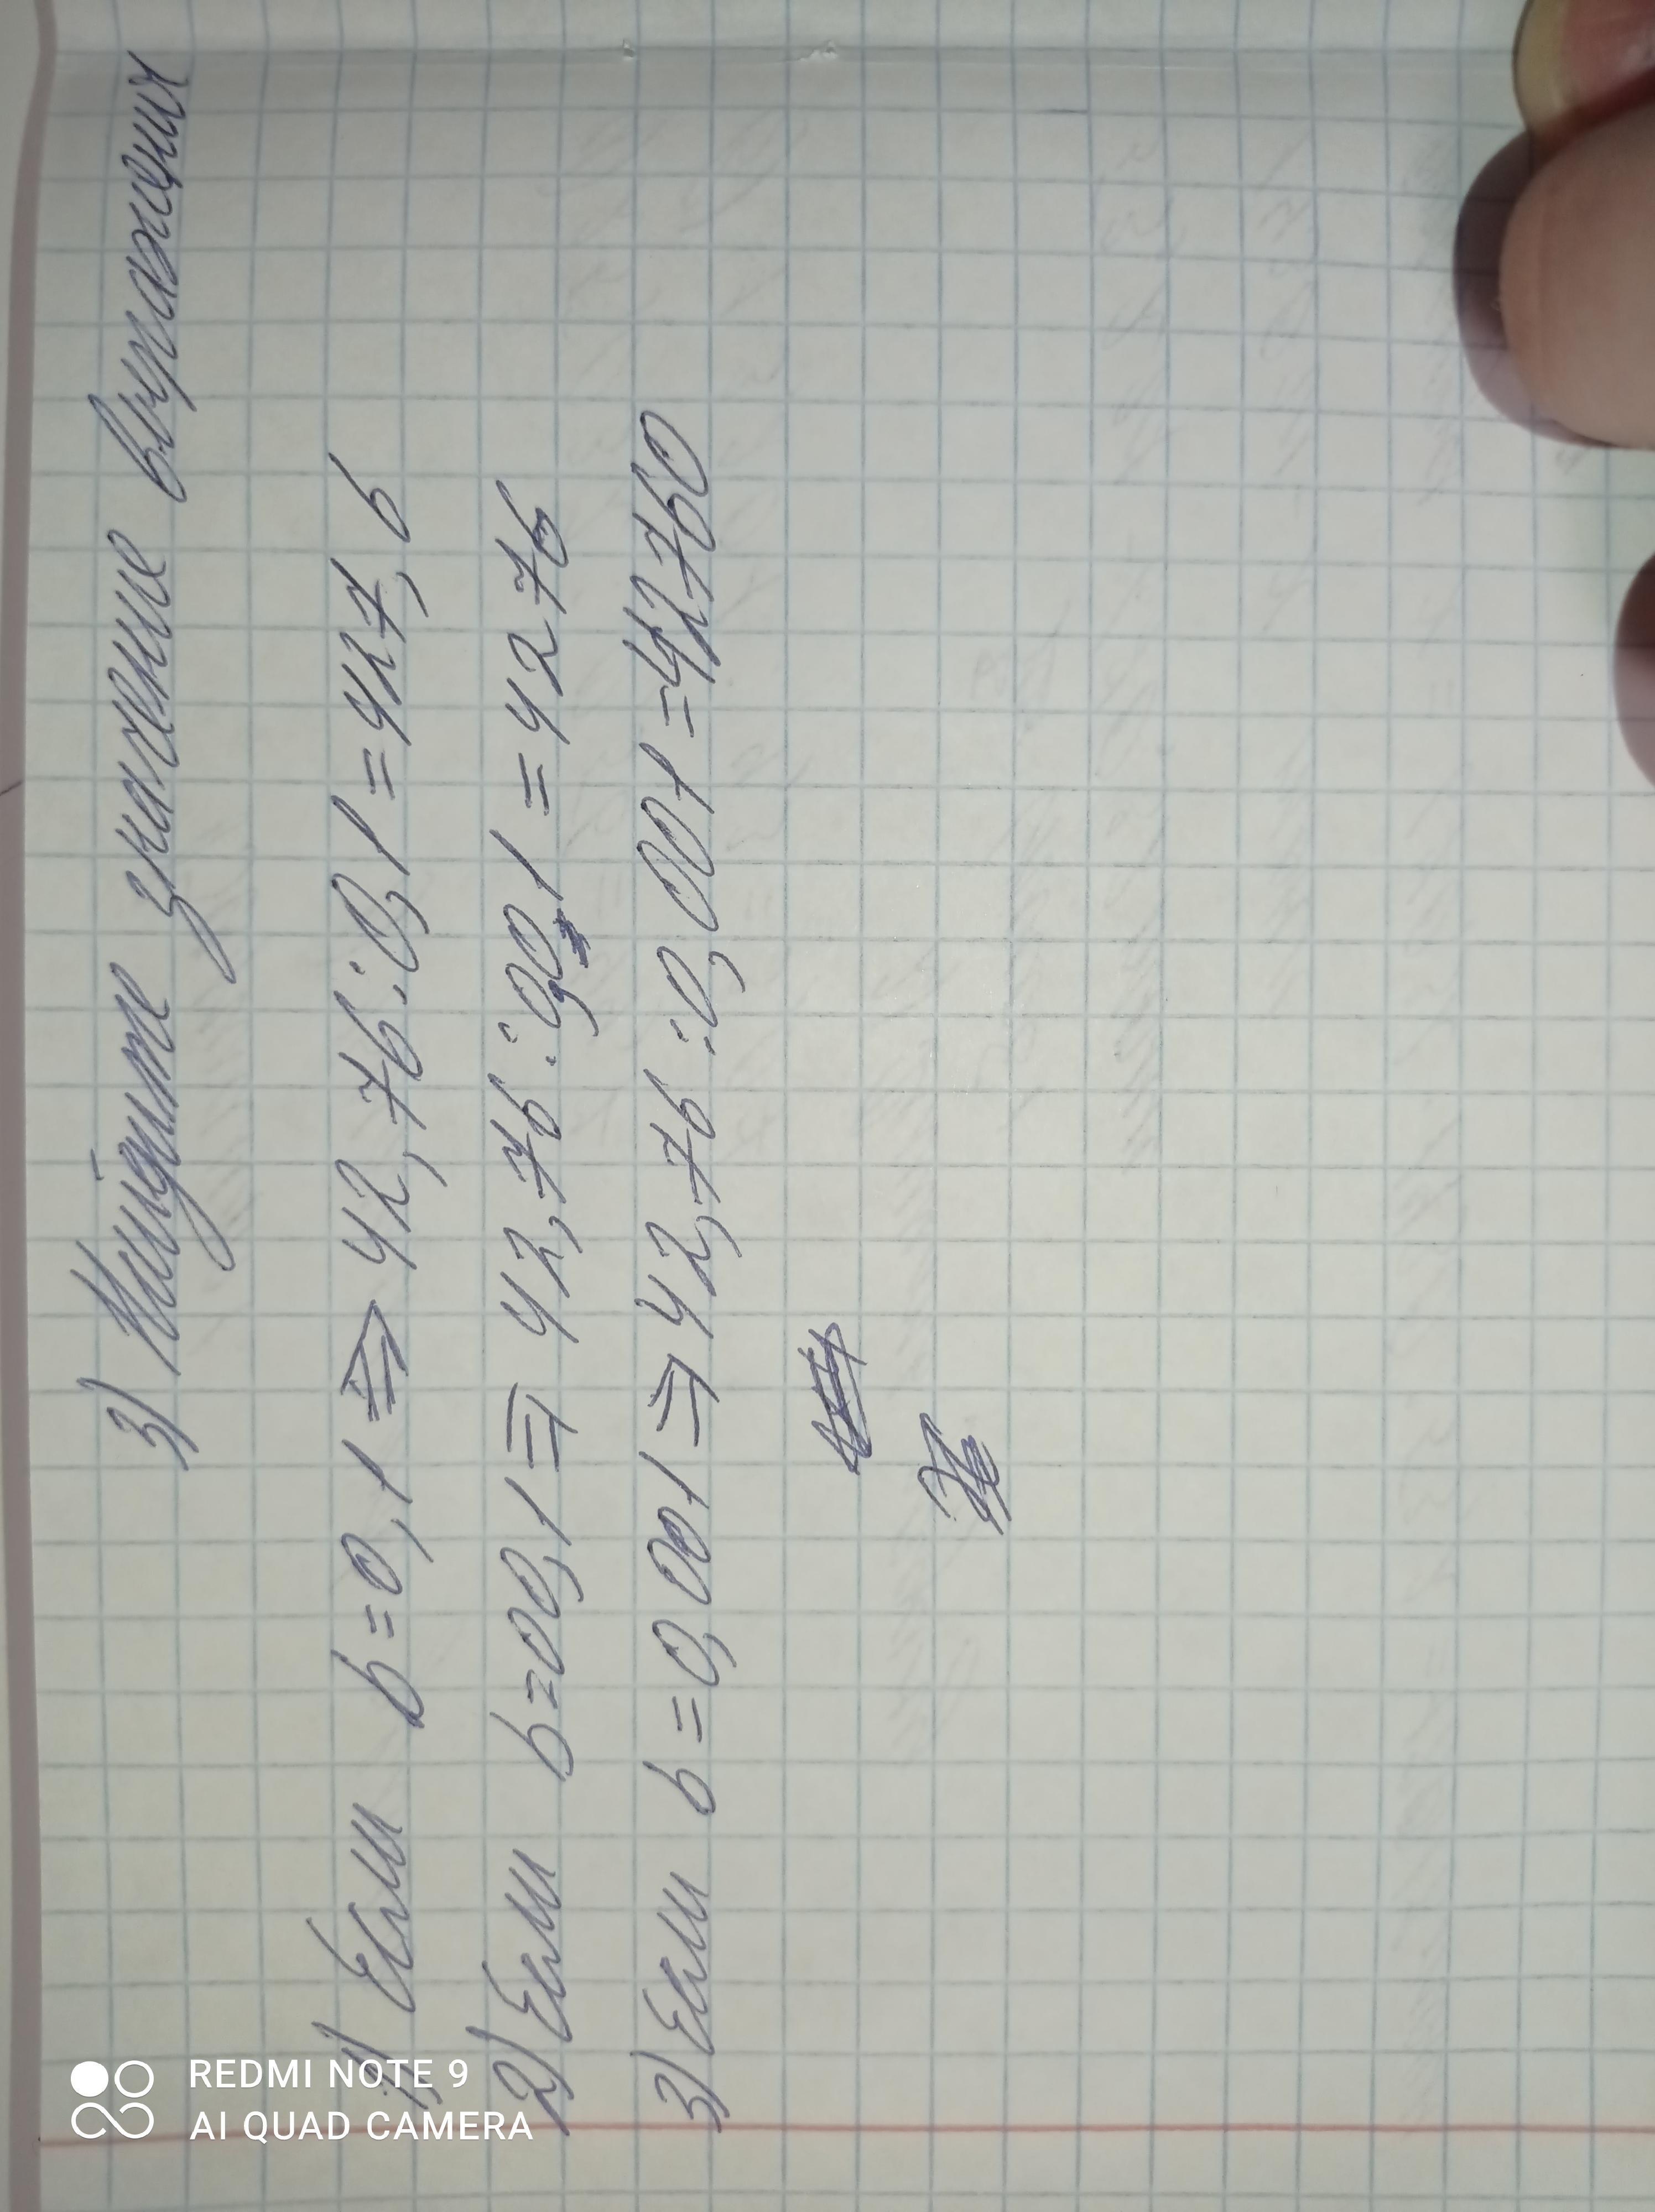 3) Найдите значение выражения
1) Если b=0,1 => 42,76:0,1=427,6
2) Если b=00,1 => 42,76:0,01=4276
3) Если b=0,001 => 42,76:0,001=42760
REDMI NOTE 9
AI QUAD CAMERA